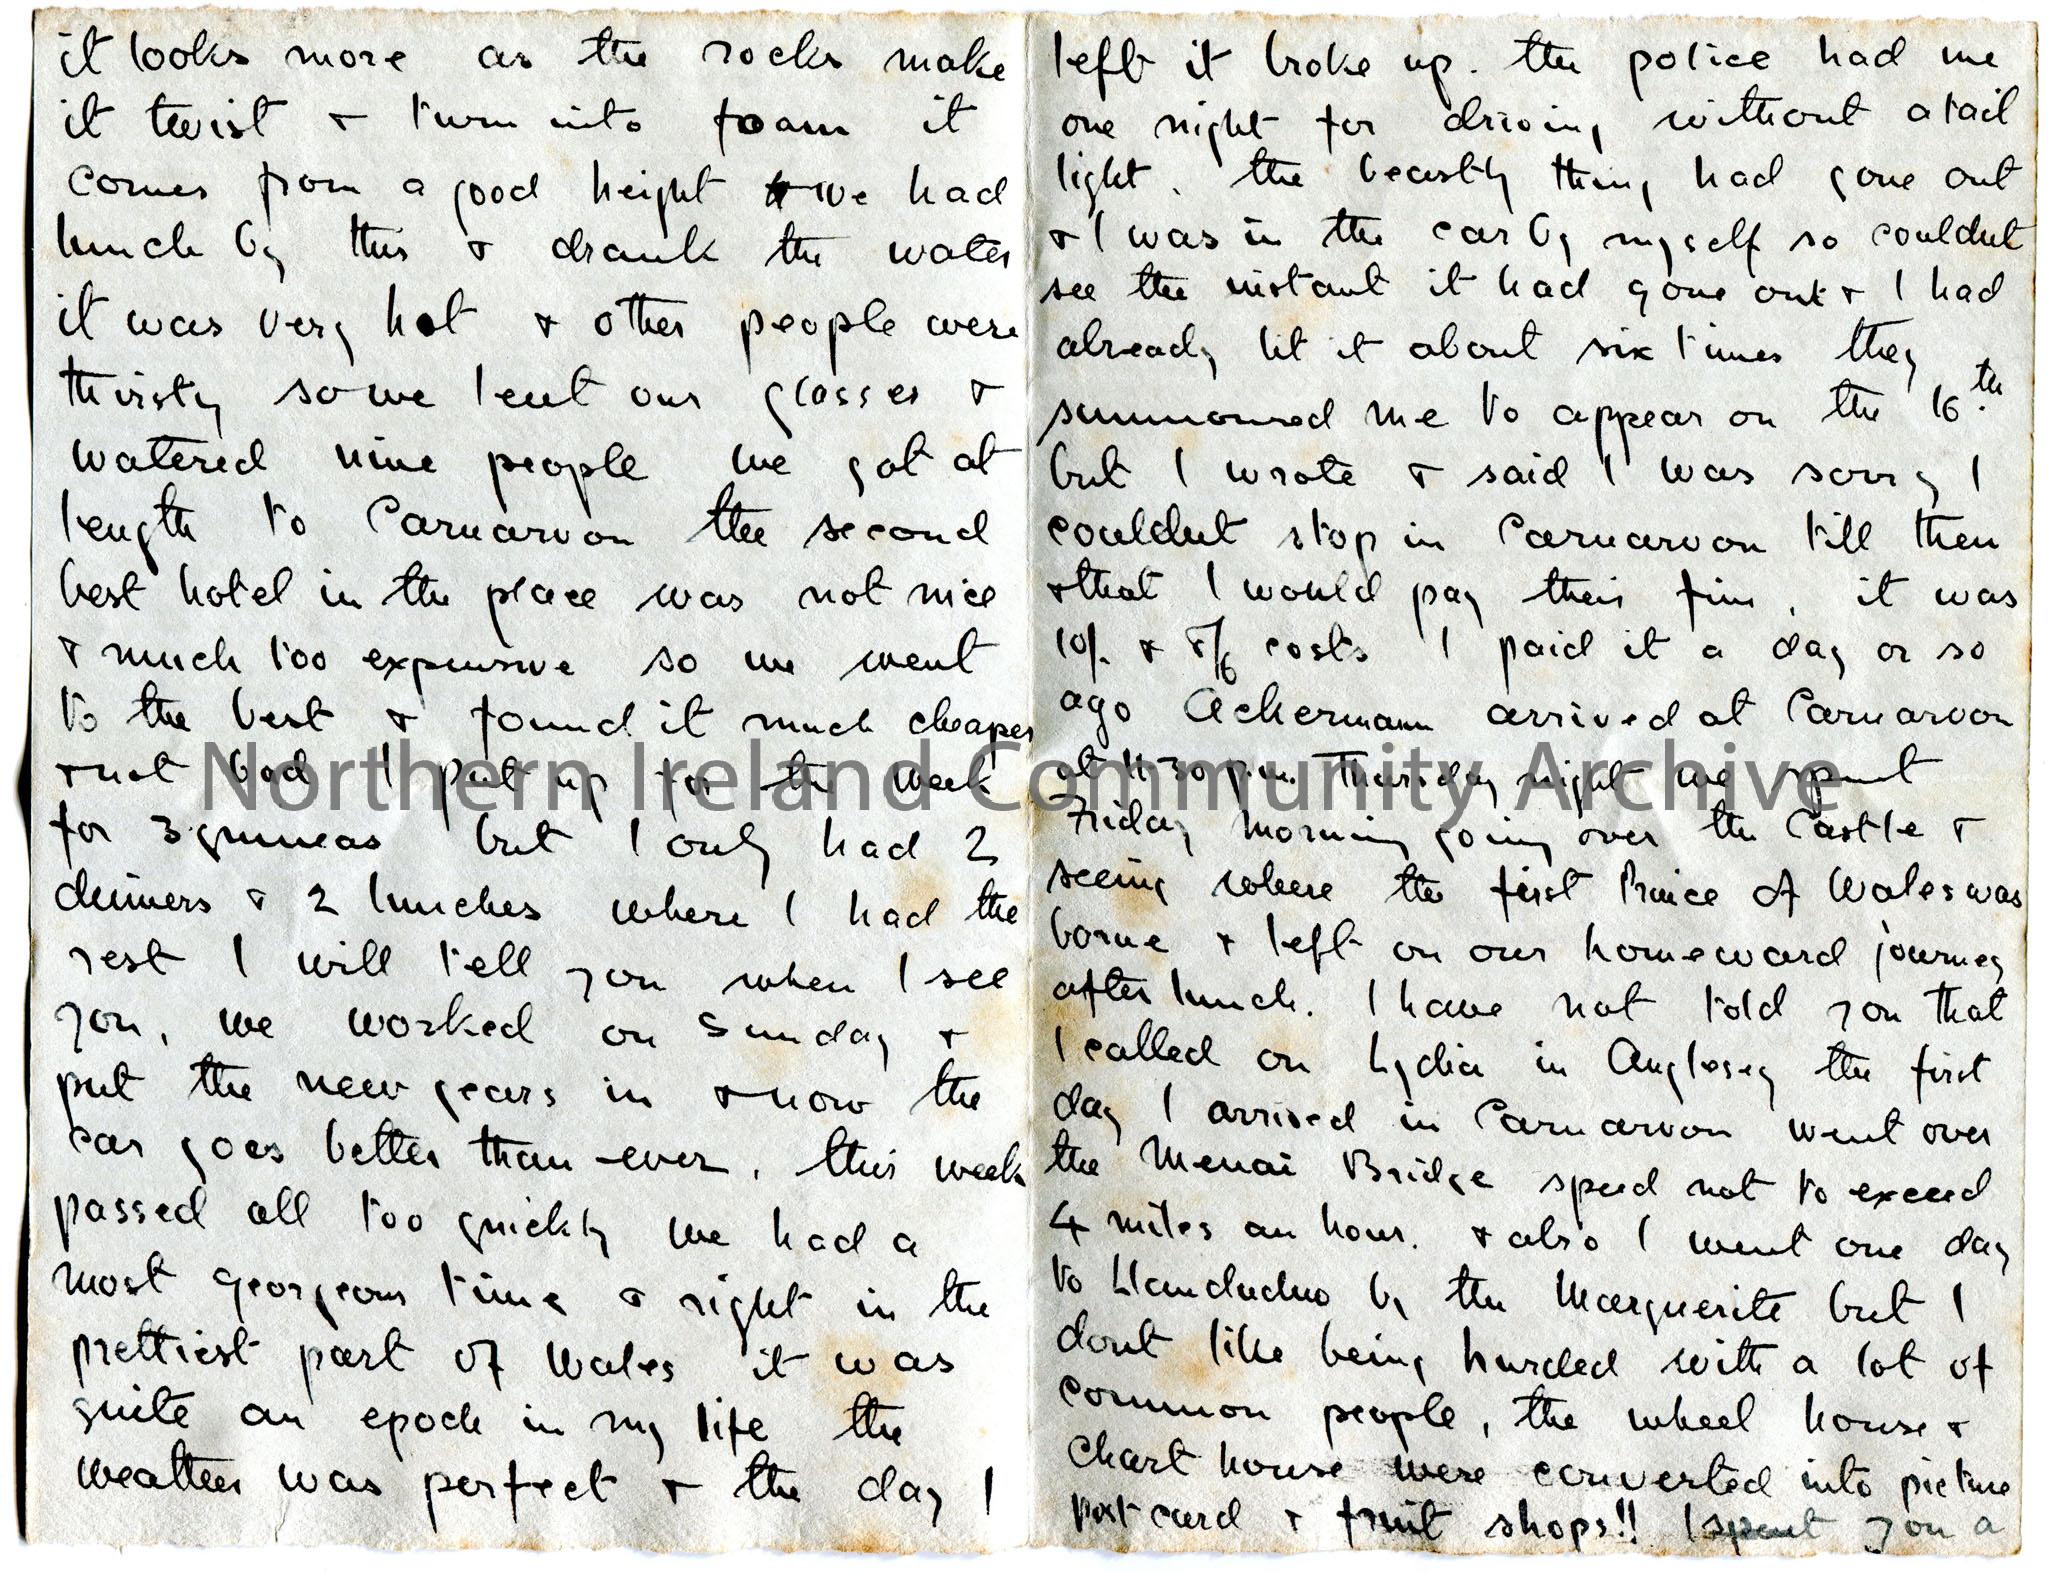 it looks more as the rocks make
it twist & turn into foam it
comes from a good height & we had
lunch by this & drank the water
it was very hot & other people were
thirsty so we lent our glasses &
watered nine people we got at
length to Carnarvon the second
best hotel in the place was not nice
& much too expensive so we went
to the best & found it much cheaper
& not bad I put up for the week
for 3 guineas but I only had 2
dinners & 2 lunches where I had the
rest I will tell you when I see
you, we worked on Sunday &
put the new gears in & now the
car goes better than ever, this week
passed all too quickly we had a
most georgeous time & right in the
prettiest part of Wales it was
quite an epoch in my life the
weather was perfect & the day I
left it broke up. the police had me
one night for driving without a tail
light. the beastly thing had gone out
& I was in the car by myself so couldnt
see the instant it had gone out & I had
already lit it about six times they
summoned me to appear on the 16th
but I wrote & said I was sorry I
couldnt stop in Carnarvon till then
& that I would pay their fine. it was
10/. & 8/6 costs I paid it a day or so
ago Ackermann arrived at Carnarvon
at 11.30 p.m. Thursday night we spent
Friday morning going over the Castle &
seeing where the first Prince of Wales was
borne & left on our homeward journey
after lunch. I have not told you that
I called on Lydia in Anglesey the first
day I arrived in Carnarvon went over
the Menai Bridge speed not to exceed
4 miles an hour. & also I went one day
to Llandudno by the Marguerite but I
dont like being hurded with a lot of
common people, the wheel house &
chart house were converted into picture
post card & fruit shops!! I spent you a
Northern Ireland Community Archive